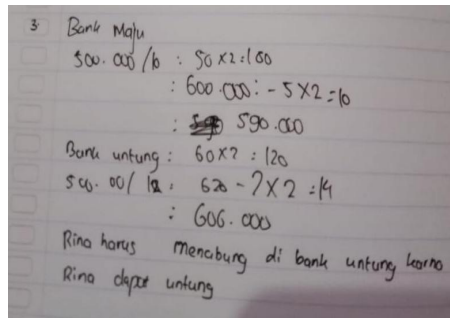 3 Bank Maju
500.000/10 : 50x2=100
: 600.000 : - 5x2=10
: 590.000
Bank untung : 60x2 : 120
500.00/ 12 : 620 - 7x2 = 14
: 606.000
Rina harus menabung di bank untung karna
Rina dapat untung